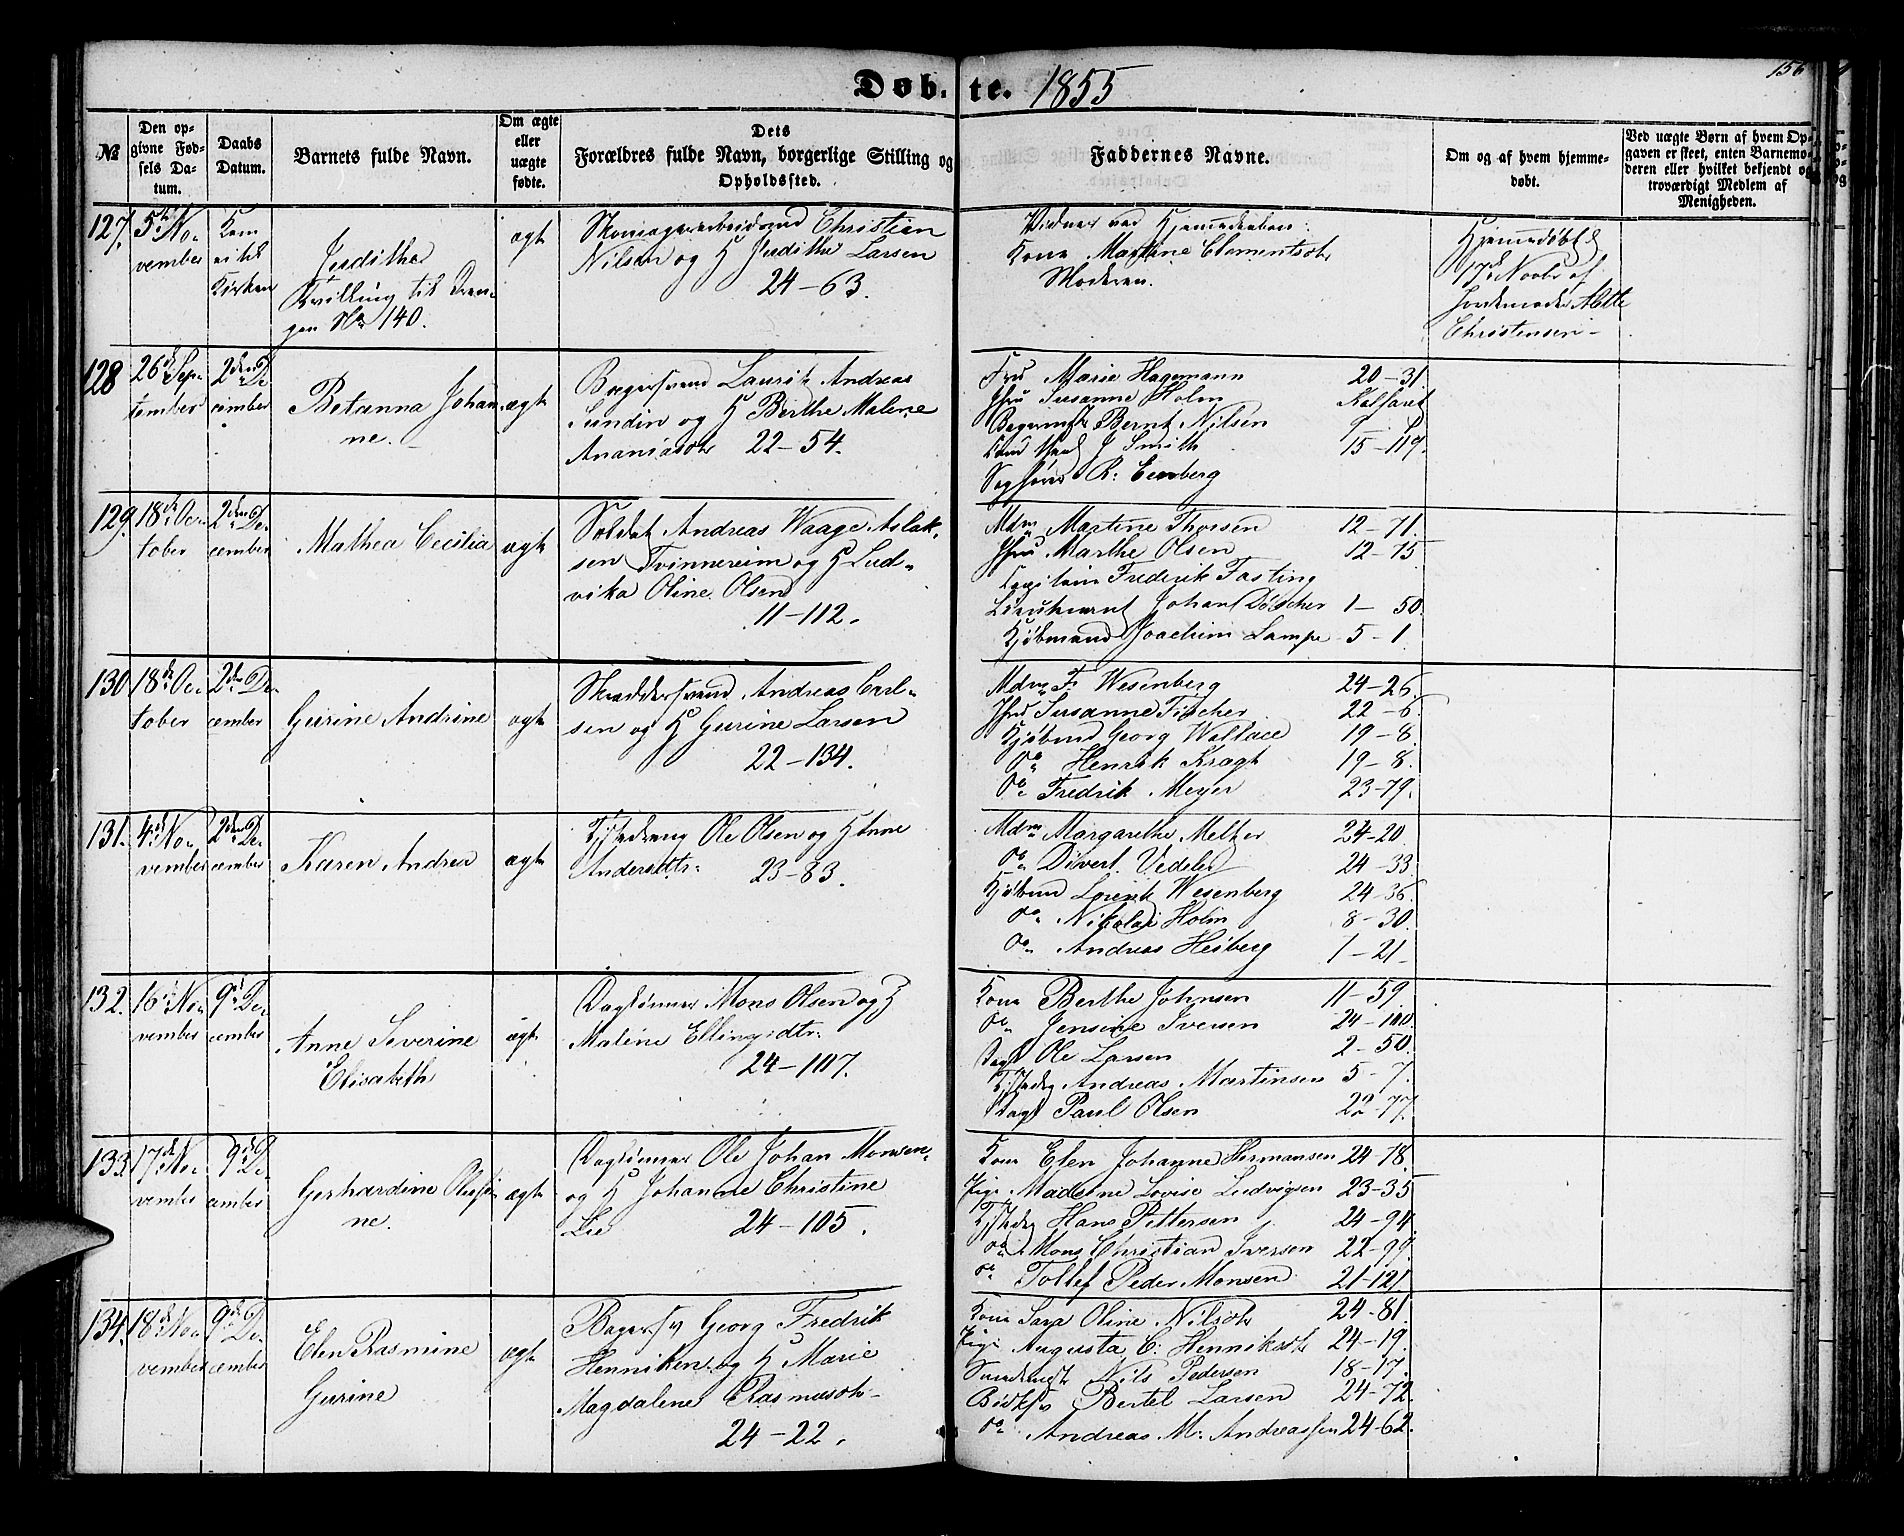 Døb- te. 1855
156
№
Den op-
givne Fød-
sels Da-
tum.
Daabs
Datum.
Barnets fulde Navn.
Om ægte
eller
uægte
fødte.
Dets
Forældres fulde Navn, borgerlige Stilling og
Opholdssted.
Faddernes Navne.
Om og af hvem hjemme-
døbt.
Ved uægte Børn af hvem Op-
gaven er skeet, enten Barnemo-
deren eller hvilket bekjendt og
troværdigt Medlem af
Menigheden.
127.
5te No-
vember
Kom
ei til
Kirken
Judithe
Tvilling til Dren-
gen No 140.
ægte
Skomagerarbeidsmd Christian
Nilsen og H Judithe Larsen
24-63.
Vidner ved Hjemmedaaben:
Kone Martine Clementsdtr
Moderen.
Hjemmedøbt d
17d Novbr af
Jordemoder Mette
Christensen-
128
26d Sep-
tember
2den De-
cember
Betanna Johan-
ne.
ægte
Bagersvend Laurits Andreas
Sundin og H Berthe Malene
Ananiasdtr 22-54.
Fru Marie Hagemann 20-31
Jfru Susanne Holm Kalfaret
Bagermstr Bernt Nilsen
J Smith 15-119.
R: Ennberg
129.
18d Oc-
tober
2den De-
cember
Mathea Cecilia
ægte
Soldat Andreas Waage Aslak-
sen Tvinnereim og H Lud-
vika Oline Olsen
11-112.
Mdm Martine Thorsen 12-71.
Jfru Marthe Olsen 12-15
Capitain Frederik Fasting
Lieutnant Johan Dölscher 1-50.
Kjøbmand Joachim Lampe 5-1.
130
18d Oc-
tober
2den De-
cember
Gurine Andrine
ægte
Skræddersvend Andreas Carl-
sen og H Gurine Larsen
22-134.
Mdm F. Wesenberg 24-26.
Jfru Susanne Fischer 22-6.
Kjøbmd Georg Wallace 19-8.
Do Henrik Kragh 19-8.
Do Fredrik Meyer 23-79.
131.
4d No-
vember
2den De-
cember
Karen Andrea
ægte
Tjstedreng Ole Olsen og H Anne
Andersdtr: 23-83.
Mdm Margarethe Meltzer 24-20
Do Divert. Vedeler 24-33
Kjøbmd Wesenberg 24-36
Do Nikolai Holm 8-30.
Do Andreas Heiberg 1-21.
132.
16d No-
vember
9d De-
cember
Anne Severine
Elisabeth
ægte
Daglønner Mons Olsen og H
Malene Ellingsdtr:
24-107.
Kone Berthe Johnsen 11-59.
Do Jensine Iversen 24-100.
Dagl Ole Larsen 2-50.
Tjstedrg Andreas Martinsen 5-7.
Dagl Paul Olsen 22-77.
133.
17d No-
vember
9d De-
cember
Gerhardine Olufi-
ne.
ægte
Daglønner Ole Johan Monsen
og H Johanne Christine
Lie 24-105.
Kone Elen Johanne Hermansen 24-78.
Pige Madsine Lovise Ludvigsen 23-35
Tjstedrg Hans Pettersen 24-94
Do Mons Christian Iversen 22-99
Do Tollef Peder Monsen 21-121
134.
18d No-
vember
9d De-
cember
Elen Rasmine
Gurine
ægte
Bagersv Georg Fredrik
Henniken og H Marie
Magdalene Rasmusdtr-
24-22.
Kone Sara Oline Nilsdtr 24-81.
Pige Augusta C: Henniksdtr 24-19.
Nils Pedersen 18-17.
Bødksv Bertel Larsen 24-72.
Do Andreas M. Andreassen 24-62.